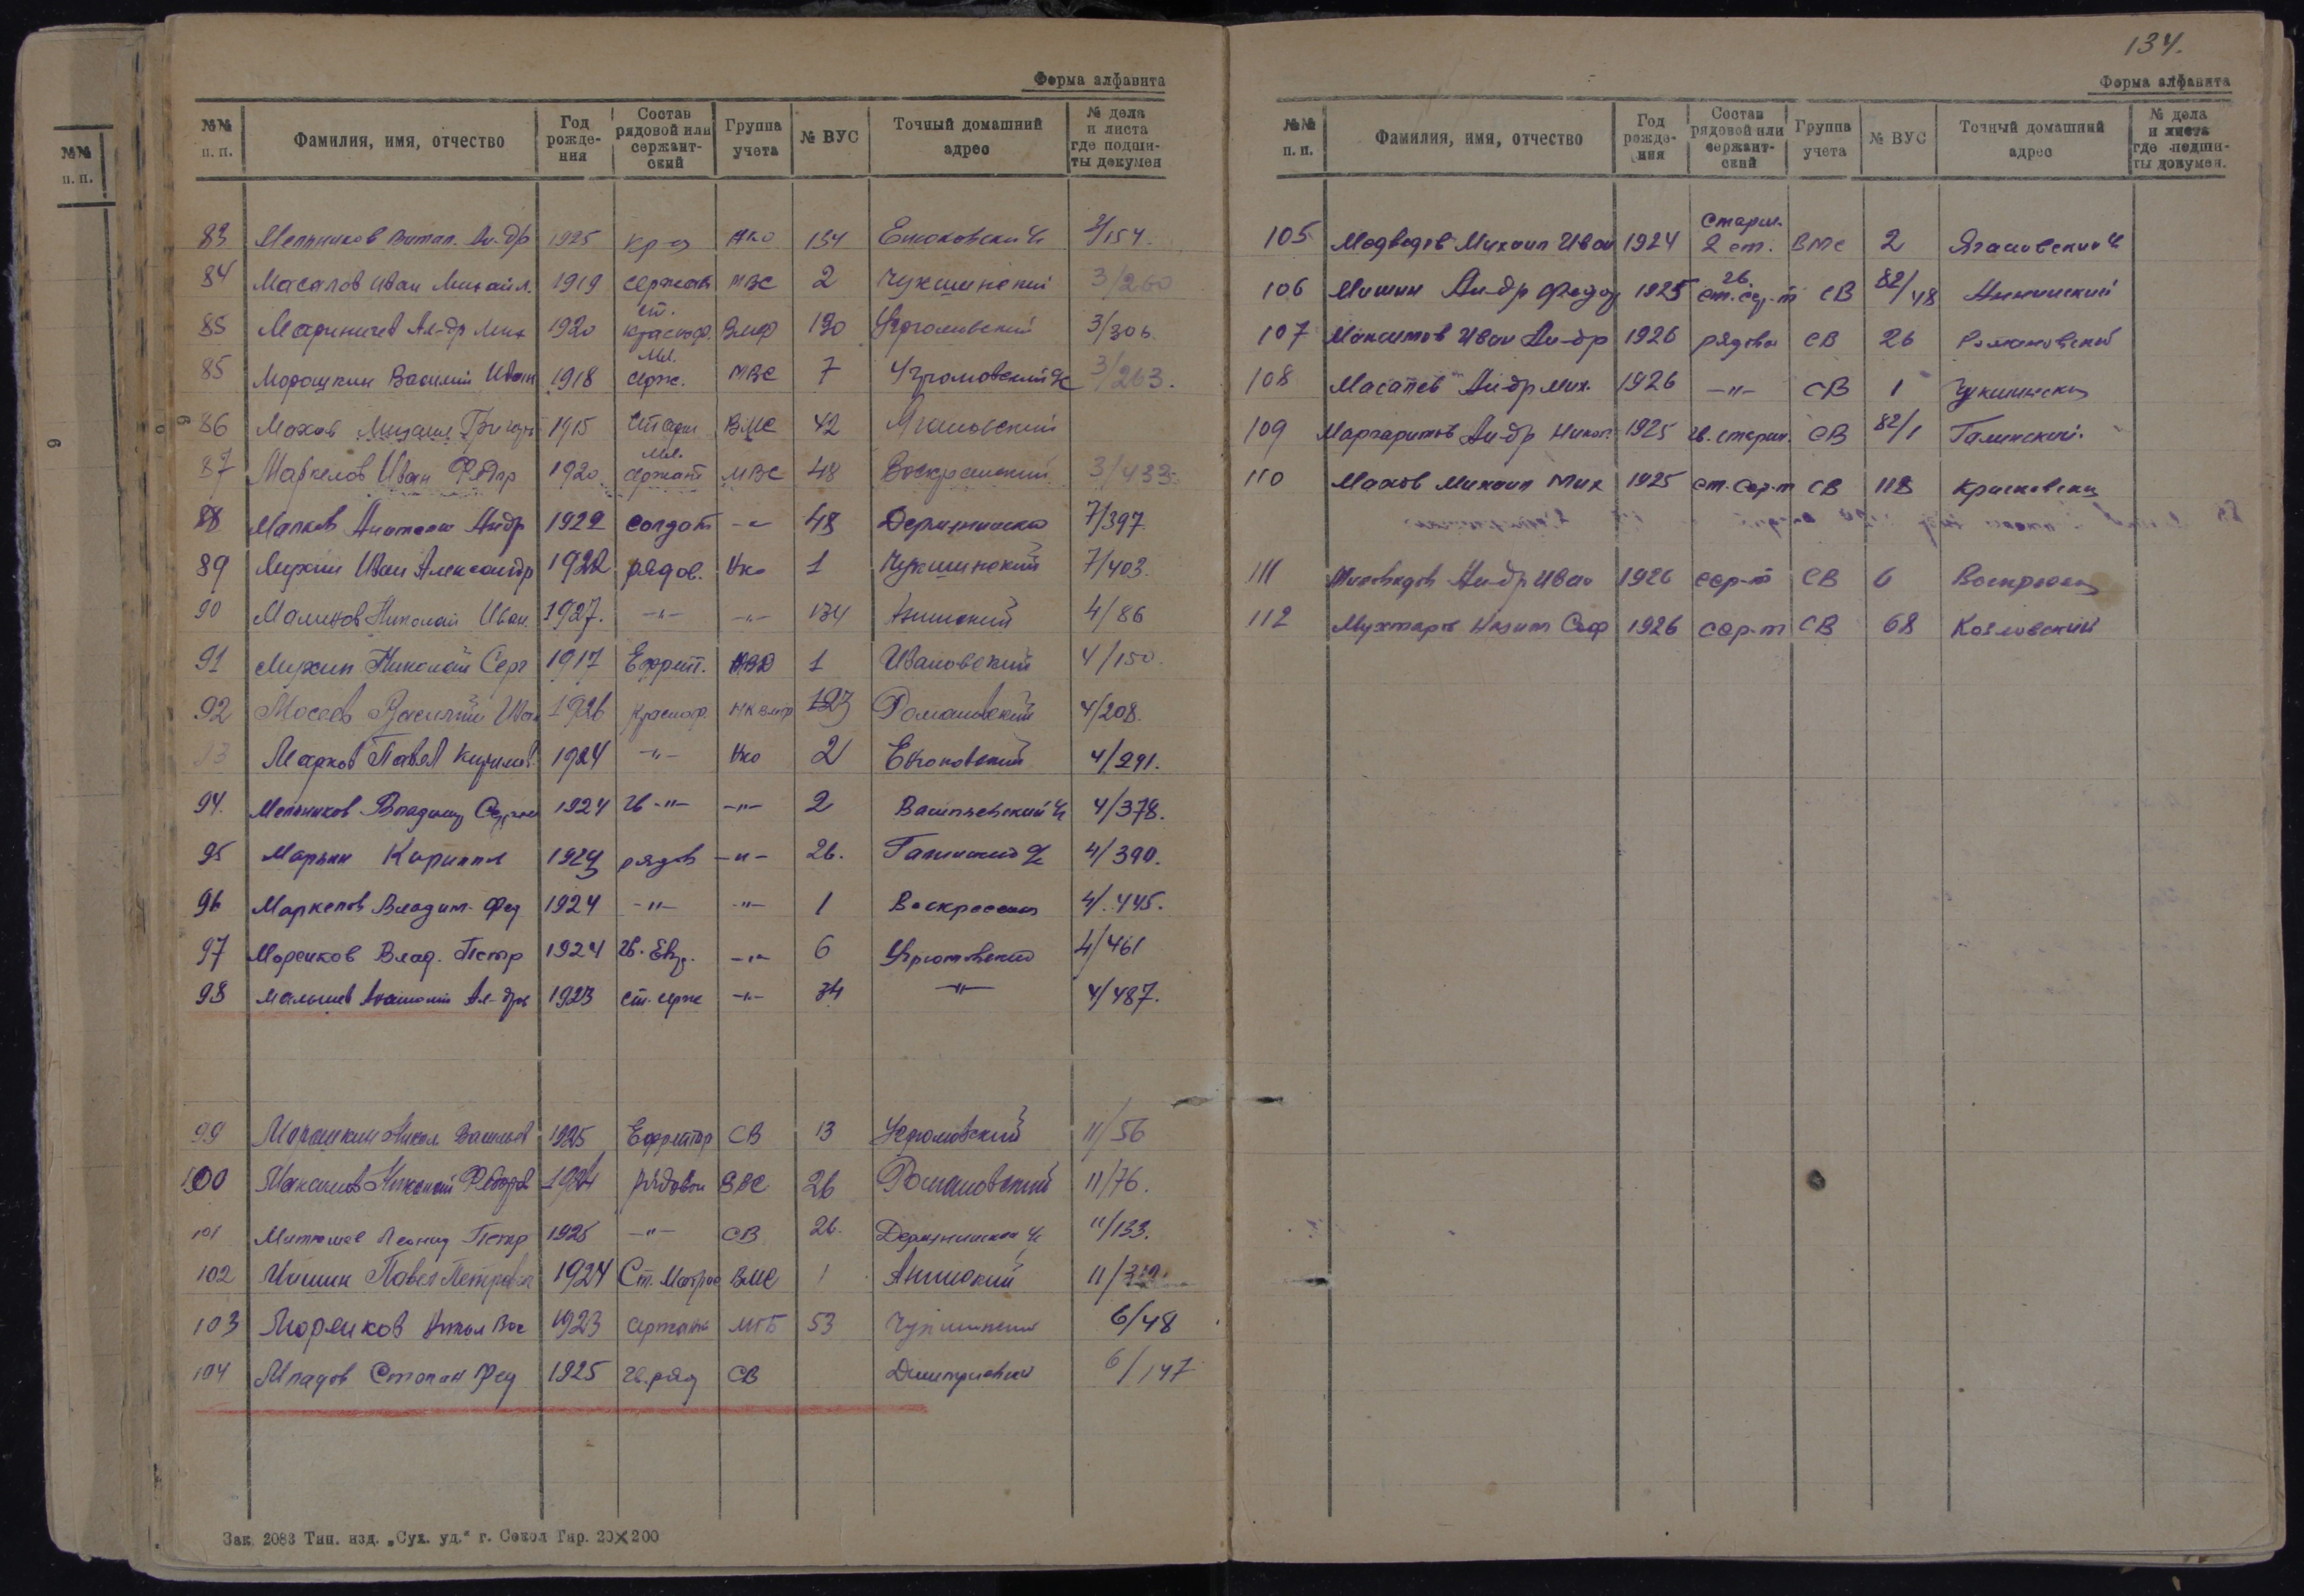 134.
Форма алфавита
№№ п. п. Фамилия, имя, отчество Год рождения Состав рядовой или сержантский Группа учета № ВУС Точный домашний адрес № дела и листа где подшиты докумен
83 Мельников Витал. Ал-др 1925 кр-ц Нко 134 Енюковский 2/154.
84 Масалов Иван Михайл. 1919 сержант МВС 2 Чукшинский 3/260
85 Мариничев Ал-др Мих 1920 ст. красноф. Вмф 130 Угрюмовский 3/306
85 Морошкин Василий Иван 1918 мл. серж. МВС 7 Угрюмовский 3/263.
86 Махов Михаил Григорь 1915 Старш ВМС 42 Ягановский
87 Маркелов Иван Федор 1920 мл. сержант МВС 48 Воскресенский 3/433
88 Малков Анатолий Андр 1922 солдат -"- 48 7/397
89 Мухин Иван Александр 1922 рядов. Нко 1 Чукшинский 7/403.
90 Малинов Николай Иван. 1927. -"- -"- 134 Аннинский 4/86
91 Мухин Николай Серг 1917 Ефрейт. 1 Ивановский 4/150.
92 Мосеев Василий Иван 1926 Красноф. НКвмф 123 Романовский 4/208.
93 Марков Павел Кирилов 1924 -"- Нко 2 Енюковский 4/291.
94. Мельников Владимир Сергее 1924 Гв -"- -"- 2 Васильевский 4/378.
95 Марьин Кирилл 1924 рядов -"- 26. Галинский 4/390.
96 Маркелов Владим. Фед 1924 -"- -"- 1 Воскресенск 4/445.
97 Моренков Влад. Петр 1924 Гв. Ефр. -"- 6 Угрюмовский 4/461
98 Малышев Анатолий Ал-др 1923 ст. серж -"- 34 -"- 4/487.
99 Морошкин Никол Васильев 1925 Ефрейтор СВ 13 Угрюмовский 11/56
100 Максимов Николай Федоров 1924 рядовой ВВС 26 Романовский 11/76.
101 Митюшев Леонид Петр 1925 -"- СВ 26. 11/133.
102 Мишин Павел Петрович 1924 Ст. Матрос ВМС 1 Аннинский
103 Моряков Никол Вас 1923 сержант МГБ 53 Чукшинский 6/48
104 Младов Степан Фед 1925 Гв. ряд СВ Дмитриевский 6/147
Зак. 2083 Тип. изд. „Сух. уд.“ г. Сокол Тир. 20×200
Форма алфавита
№№ п. п. Фамилия, имя, отчество Год рождения Состав рядовой или сержантский Группа учета № ВУС Точный домашний адрес № дела и листа где подшиты докумен.
105 Медведев Михаил Иван 1924 Старш. 2 ст. ВМС 2 Ягановский
106 Мишин Ал-др Федор 1925 гв. ст. сер-т СВ 82/48 Аннинский
107 Максимов Иван Ал-др 1926 рядовой СВ 26 Романовский
108 Масалев Ал-др Мих. 1926 -"- СВ 1 Чукшинский
109 Маргаритов Ал-др Никол. 1925 гв. старш. СВ 82/1 Галинский.
110 Махов Михаил Мих 1925 ст. сер-т СВ 118
111 Ал-др Иван 1926 сер-т СВ 6 Воскресен
112 1926 сер-т СВ 68 Козловский